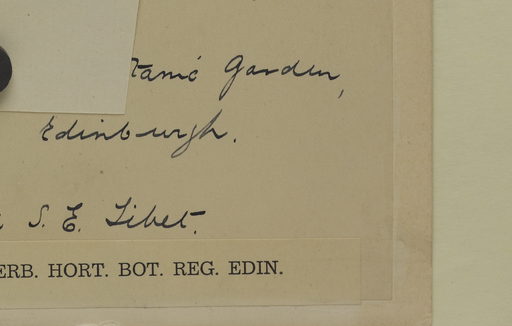 tanic Garden,
Edinburgh.
S. E. Tibet.
ERB. HORT. BOT. REG. EDIN.